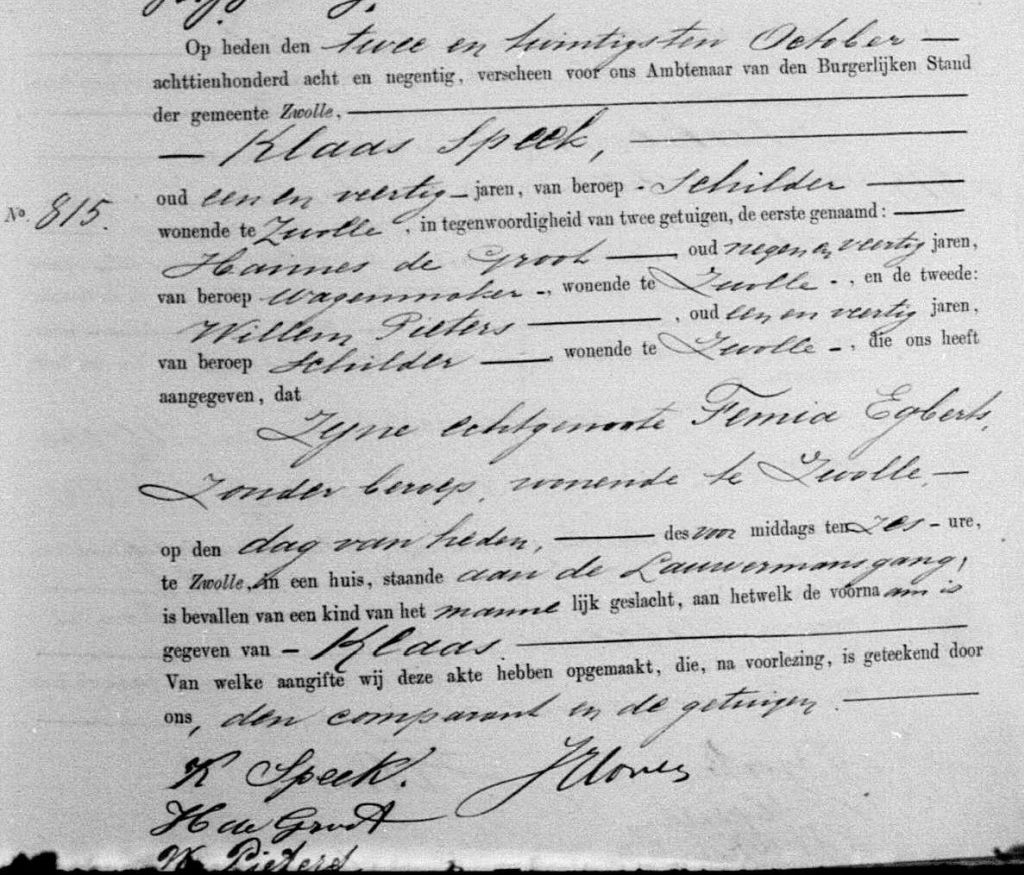 Op heden den twee en twintigsten October
achttienhonderd acht en negentig, verscheen voor ons Ambtenaar van den Burgerlijken Stand
der gemeente Zwolle,
Klaas Speek,
oud een en veertig jaren, van beroep Schilder
No. 815.
wonende te Zwolle, in tegenwoordigheid van twee getuigen, de eerste genaamd:
Hannes de Groot, oud negen en veertig jaren,
van beroep wagenmaker, wonende te Zwolle, en de tweede:
Willem Pieters, oud een en veertig jaren,
van beroep Schilder, wonende te Zwolle, die ons heeft
aangegeven, dat
Zyne echtgenoote Femia Egberts,
Zonder beroep, wonende te Zwolle,
op den dag van heden, des voor middags ten zes ure,
te Zwolle, in een huis, staande aan de Lauwermansgang,
is bevallen van een kind van het manne lijk geslacht, aan hetwelk de voorna am is
gegeven van Klaas.
Van welke aangifte wij deze akte hebben opgemaakt, die, na voorlezing, is geteekend door
ons, den comparant en de getuigen.
K Speek.
H de Groot
W Pieters